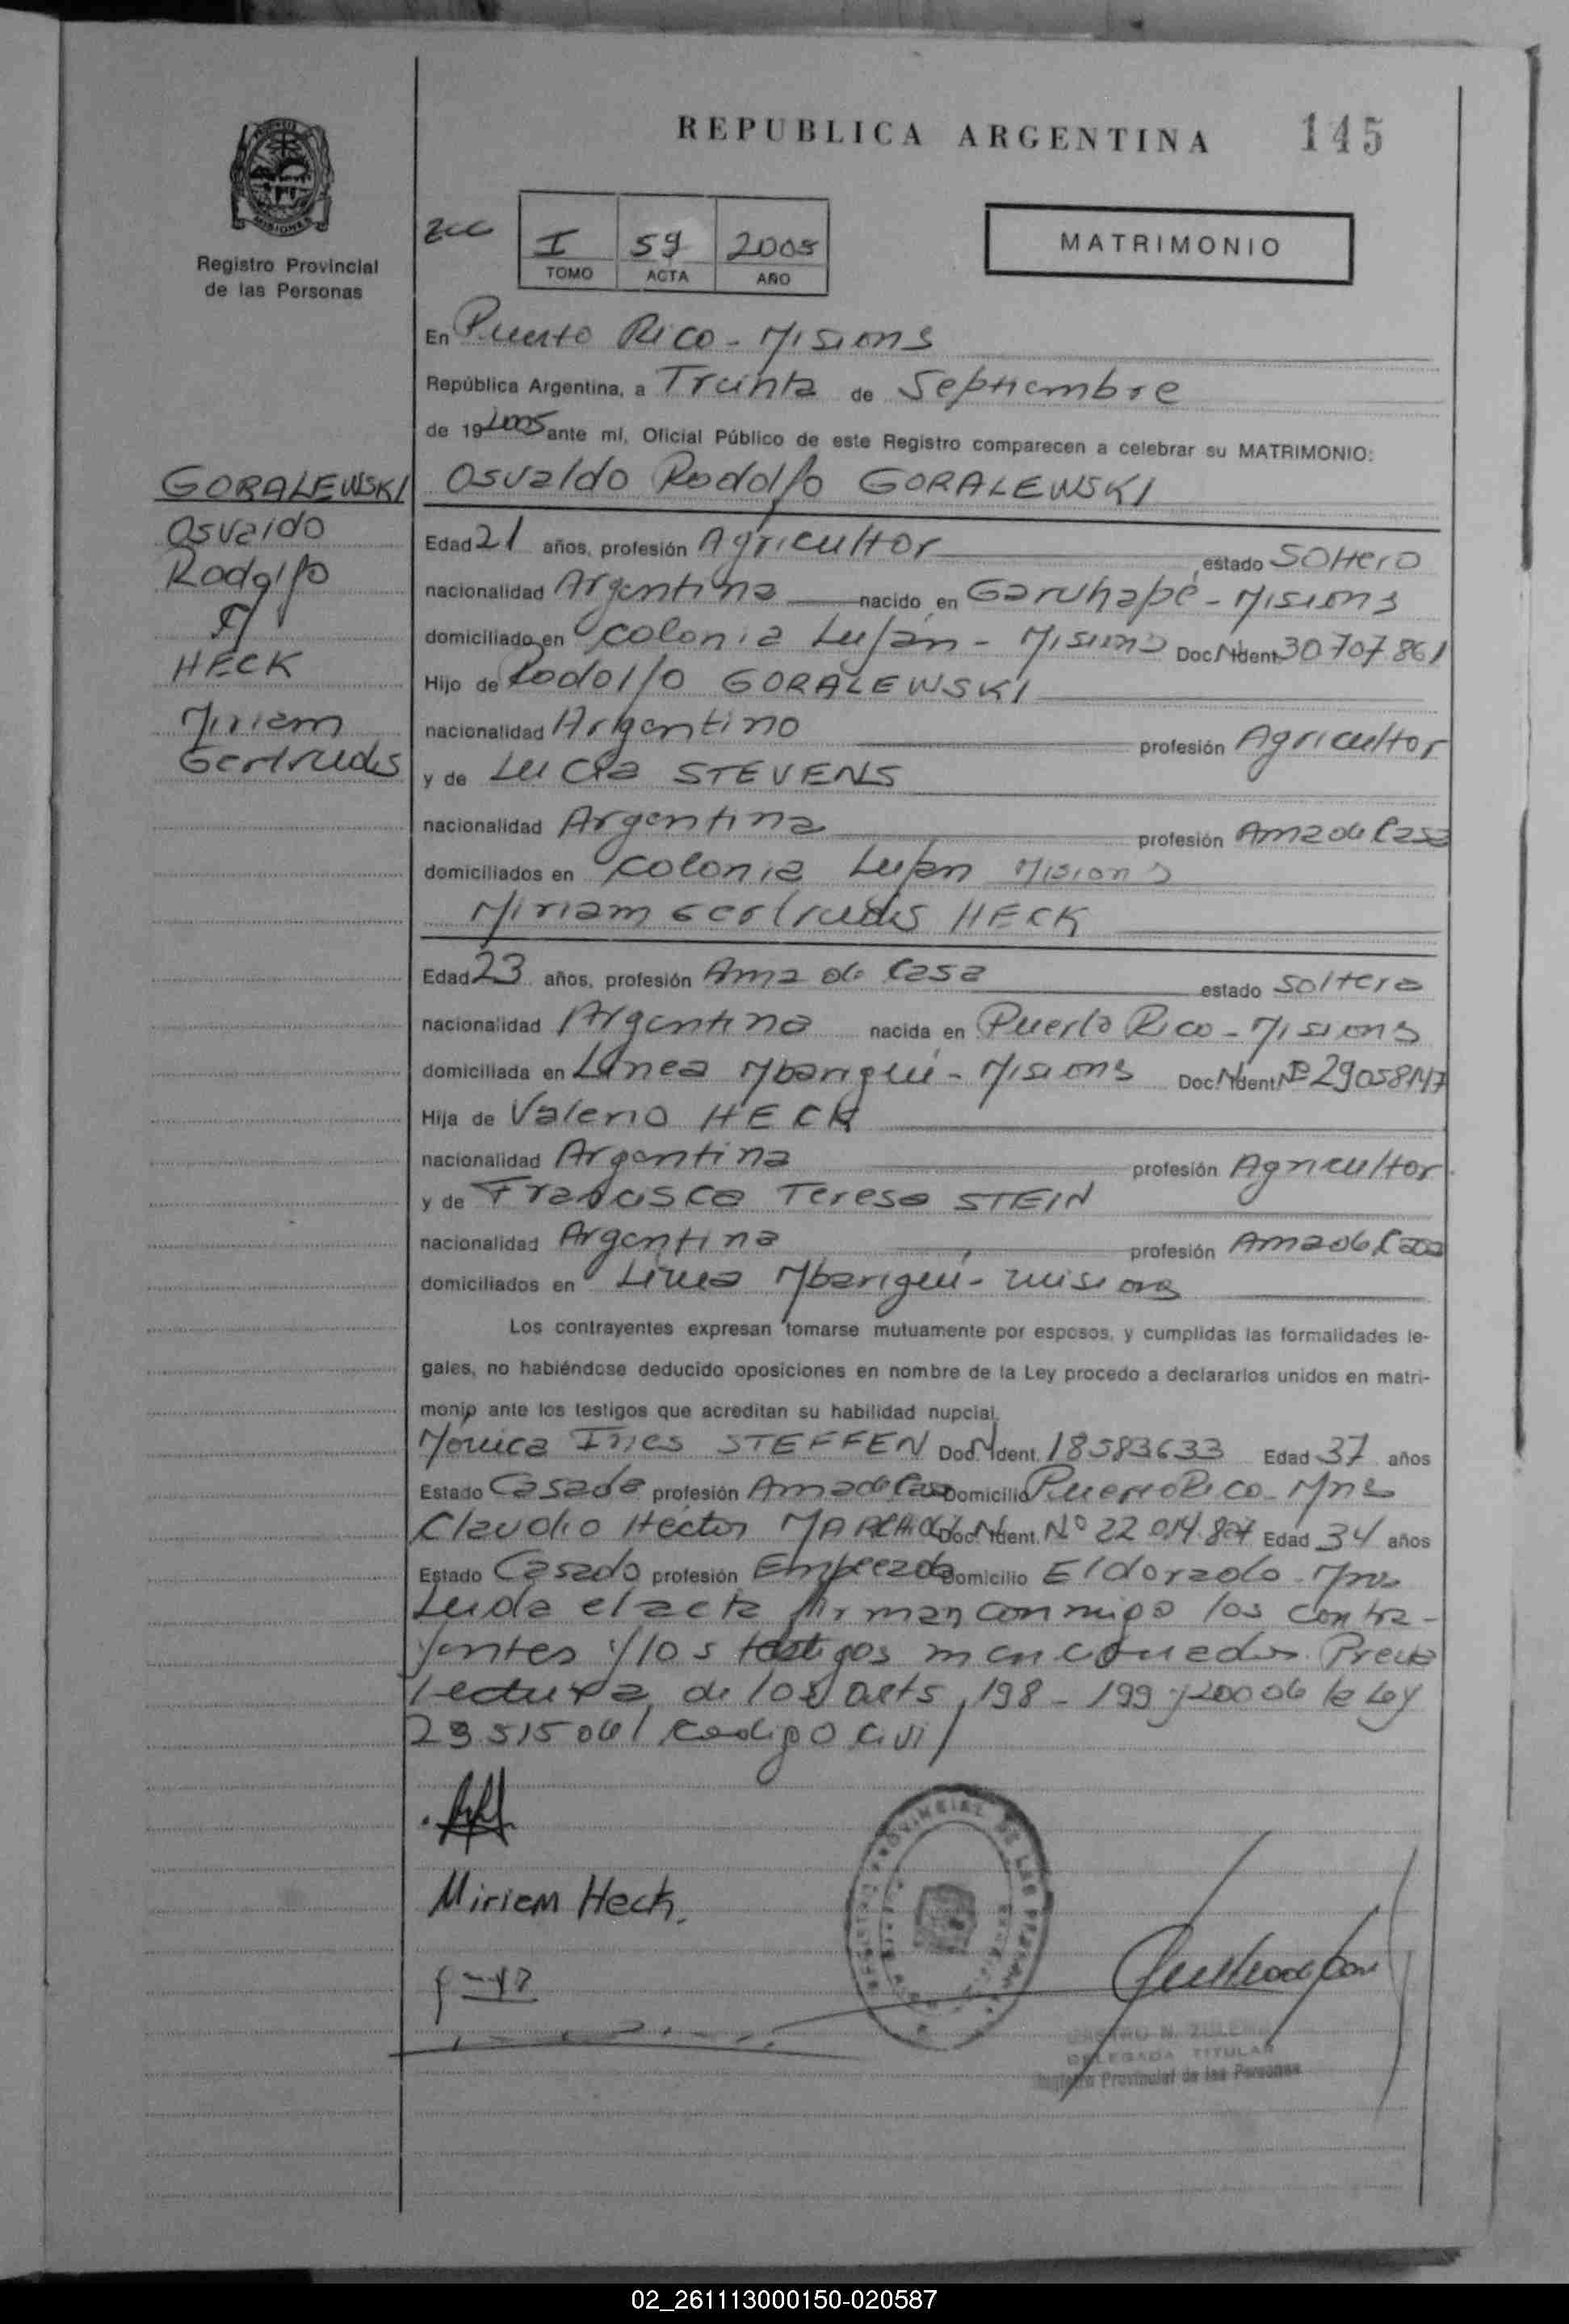 REPUBLICA ARGENTINA 145
MISIONES
Registro Provincial
de las Personas
I 59 2005
TOMO ACTA AÑO
MATRIMONIO
En Puerto Rico - Misiones
República Argentina, a Treinta de Septiembre
de 19 2005 ante mí, Oficial Público de este Registro comparecen a celebrar su MATRIMONIO:
GORALEWSKI
Osvaldo
Rodolfo
y
HECK
Miriam
Gertrudis
Osvaldo Rodolfo GORALEWSKI
Edad 21 años, profesión Agricultor estado Soltero
nacionalidad Argentina nacido en Garuhapé - Misiones
domiciliado en Colonia Luján - Misiones Doc. Ident. 30 707 861
Hijo de Rodolfo GORALEWSKI
nacionalidad Argentino profesión Agricultor
y de Lucia STEVENS
nacionalidad Argentina profesión Ama de Casa
domiciliados en Colonia Luján Misiones
Miriam Gertrudis HECK
Edad 23 años, profesión Ama de Casa estado Soltera
nacionalidad Argentina nacida en Puerto Rico - Misiones
domiciliada en Linea Ybarigui - Misiones Doc. Ident. Nº 29058147
Hija de Valerio HECK
nacionalidad Argentina profesión Agricultor
y de Francisca Teresa STEIN
nacionalidad Argentina profesión Ama de Casa
domiciliados en Linea Ybarigui - Misiones
Los contrayentes expresan tomarse mutuamente por esposos, y cumplidas las formalidades le-
gales, no habiéndose deducido oposiciones en nombre de la Ley procedo a declararlos unidos en matri-
monio ante los testigos que acreditan su habilidad nupcial.
Mónica Ines STEFFEN Doc. Ident. 18583633 Edad 37 años
Estado Casada profesión Ama de Casa Domicilio Puerto Rico - Mnes
Claudio Hector Doc. Ident. Nº 22 014.807 Edad 34 años
Estado Casado profesión Empleado Domicilio Eldorado - Mnes
Leida el acta firman conmigo los contra-
yentes y los testigos mencionados. Previa
lectura de los arts, 198 - 199 y 200 de la Ley
23.515 del Codigo Civil
Miriam Heck.
REGISTRO PROVINCIAL DE LAS PERSONAS
CASTRO N. ZULEMA
DELEGADA TITULAR
Registro Provincial de las Personas
02_261113000150-020587